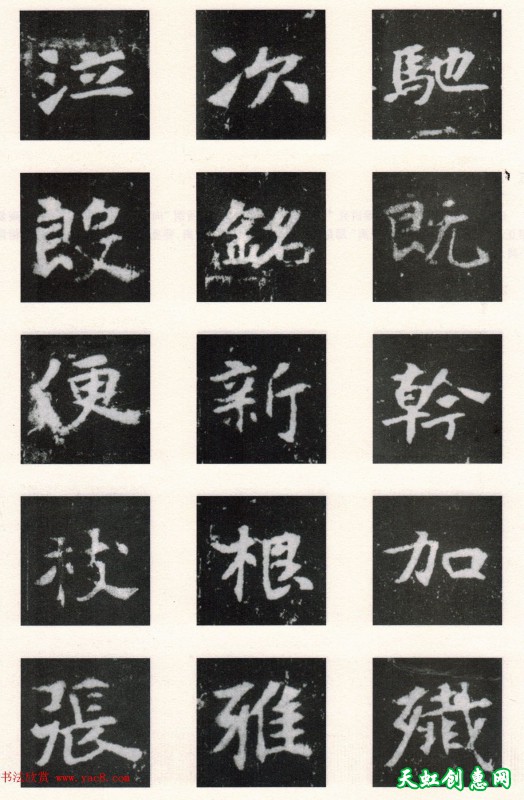 馳既幹加殲
次銘新根雅
泣便張
书法欣赏 www.yac8.com
天虹创惠网